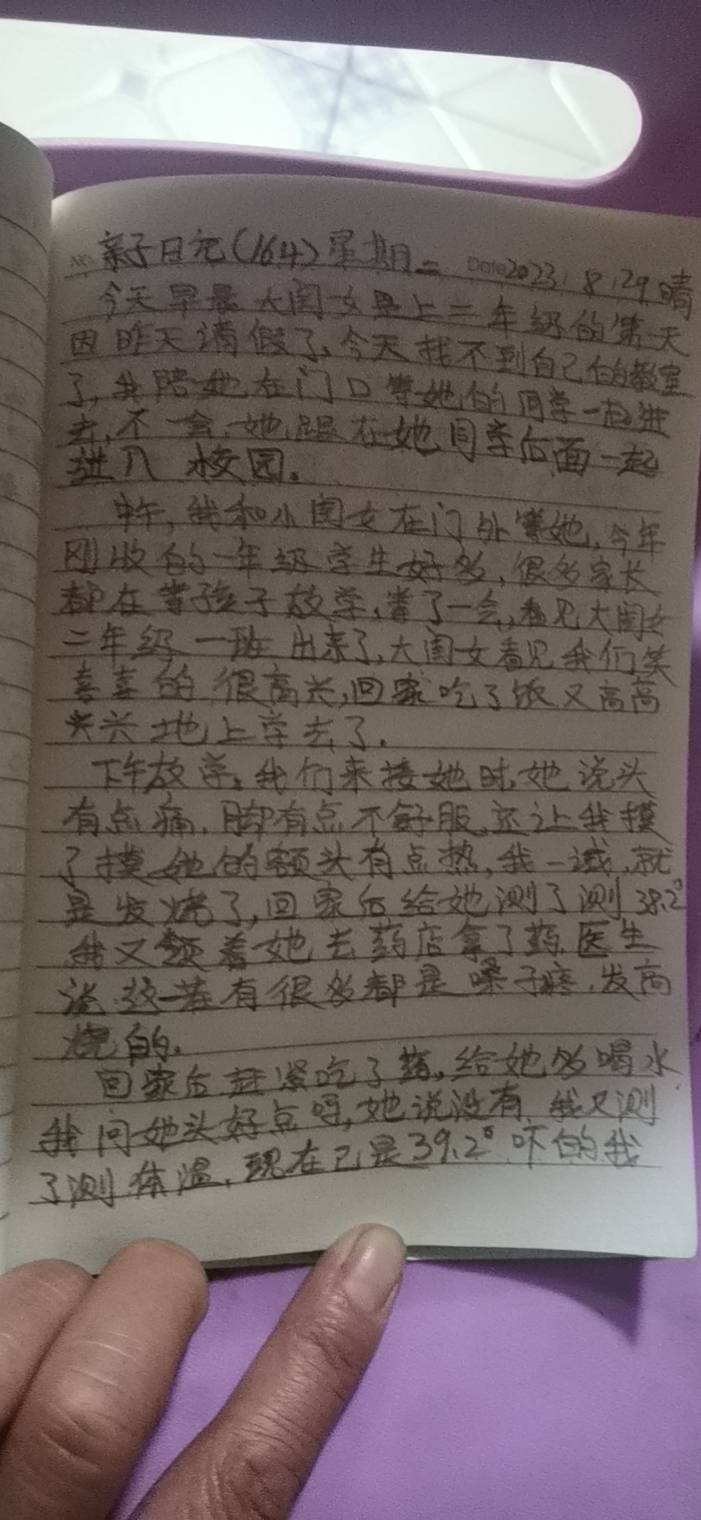 亲子日记(164)星期二 Date2023.8.29晴
今天早晨大闺女是上二年级的第一天
因昨天请假了,今天找不到自己的教室
了,我陪她在门口等她的同学一起进
去,不一会,她跟在她同学后面一起
进入校园。
中午,我和小闺女在门外等她,今年
刚收的一年级学生好多,很多家长
都在等孩子放学,等了一会,看见大闺女
二年级一班出来了,大闺女看见我们笑
喜喜的很高兴,回家吃了饭又高高
兴兴地上学去了.
下午放学。我们来接她时,她说头
有点痛,脚有点不舒服,还让我摸
了摸她的额头有点热,我一试,就
是发烧了,回家后给她测了测38.2°
我又领着她去药店拿了药,医生
说,这一茬有很多都是嗓子疼,发高
烧的。
回家后赶紧吃了药,给她多喝水
我问她头好点吗,她说没有,我又测
了测体温,现在已是39.2°吓的我